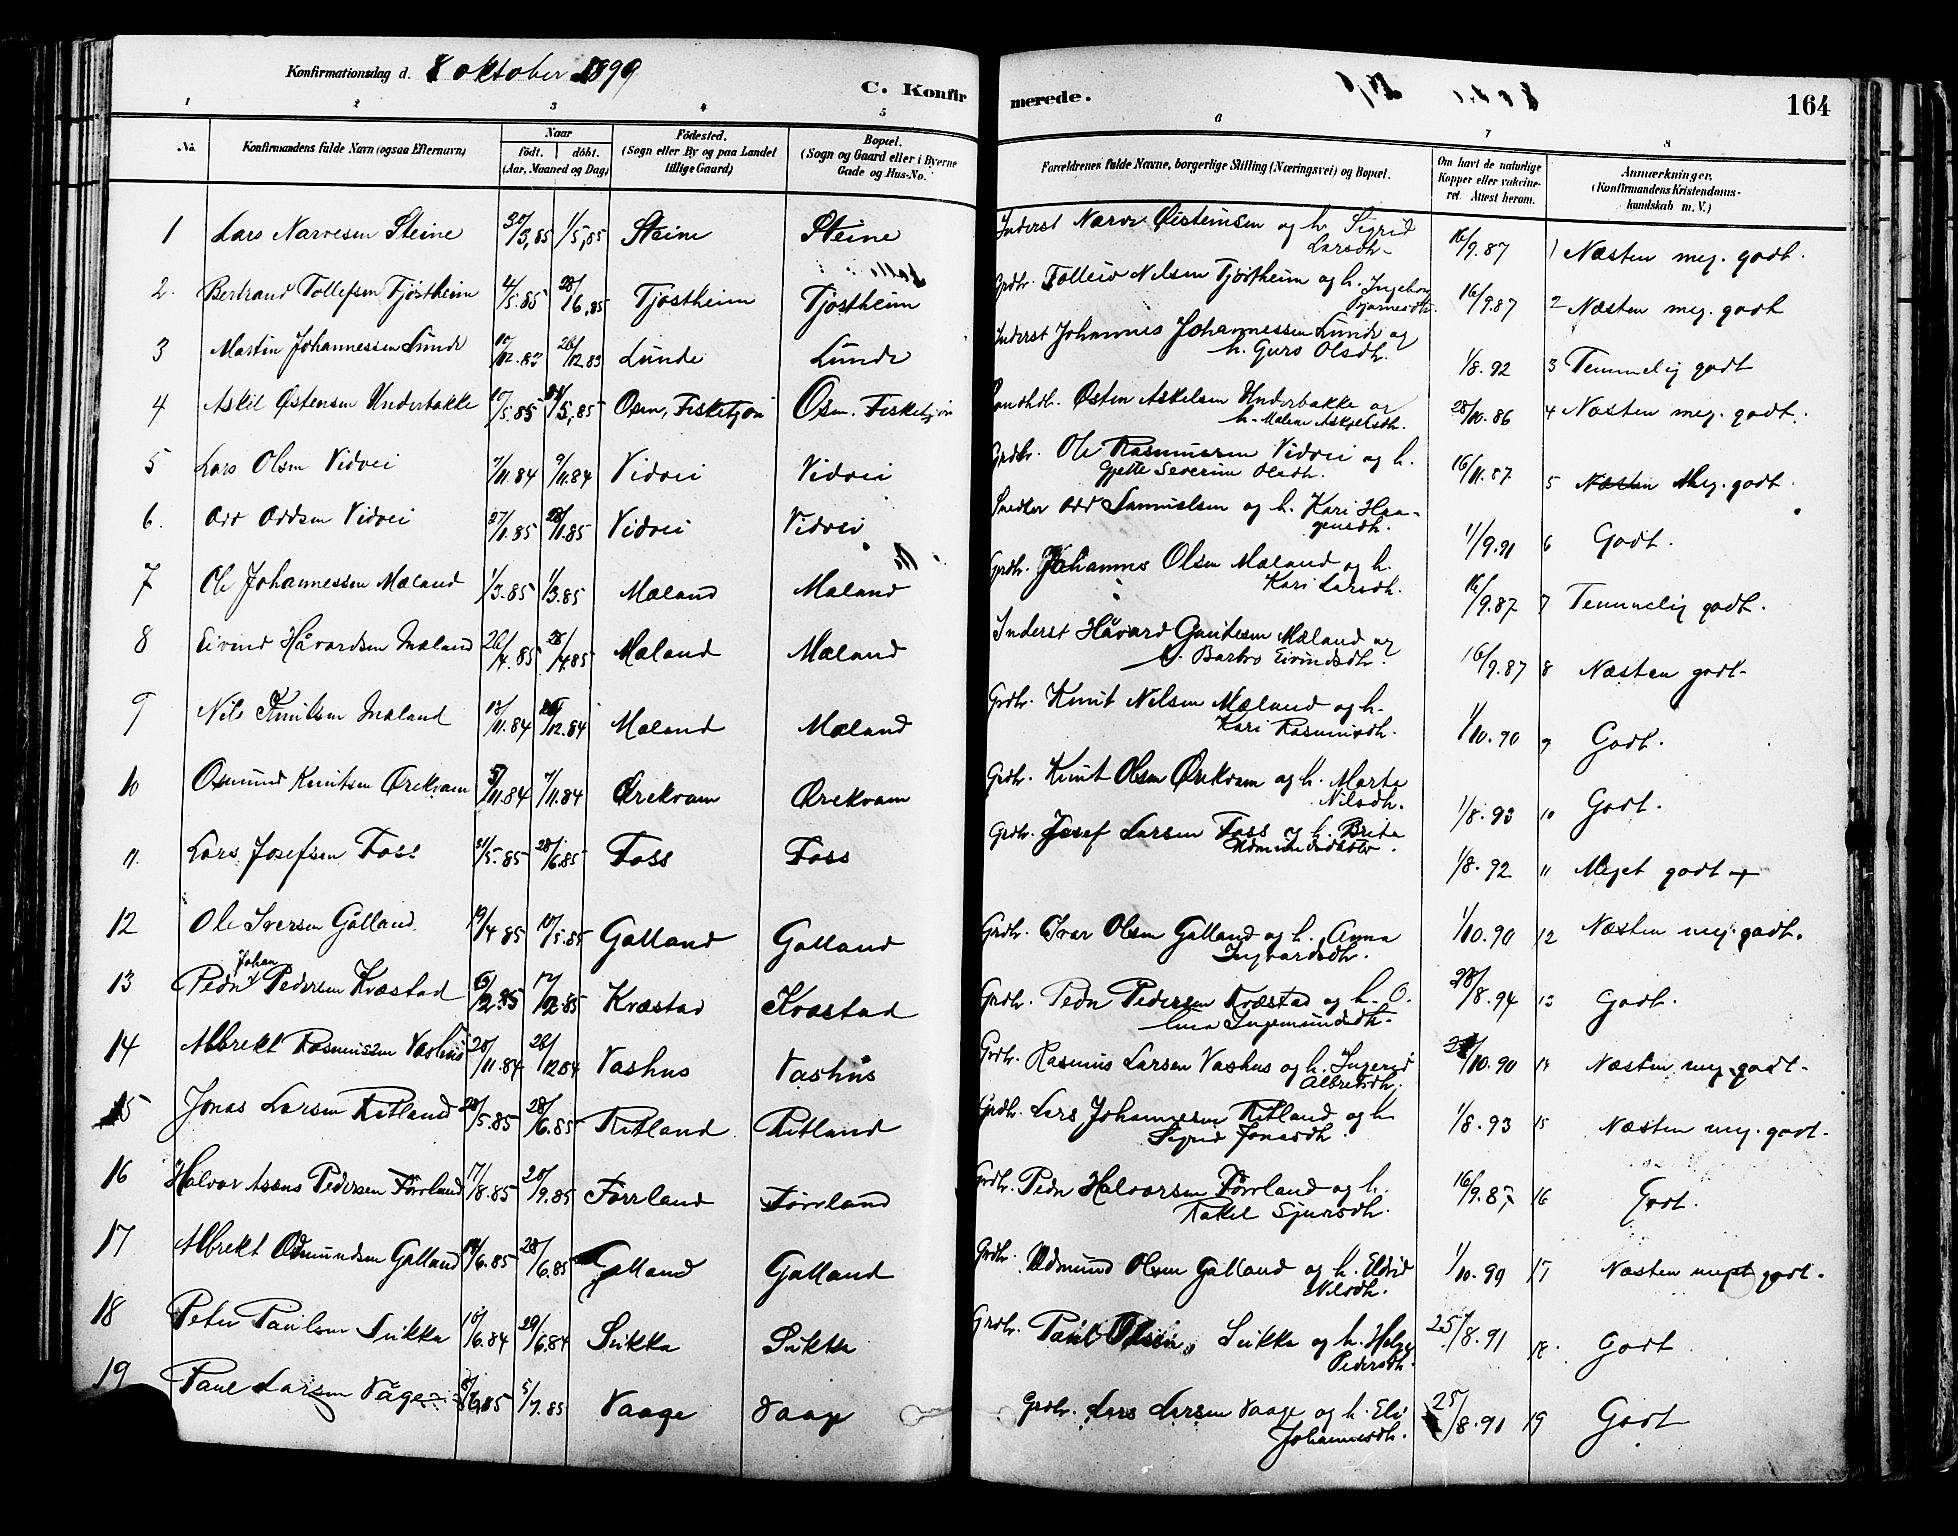 Konfirmationsdag d. 8 oktober 1899
C. Konfirmerede.
164
1 2 3 4 5 6 7 8
No. Konfirmandens fulde Navn (ogsaa Efternavn) Naar födt. döbt. (Aar, Maaned og Dag) Födested. (Sogn eller By og paa Landet tillige Gaard) Bopæl. (Sogn og Gaard eller i Byerne Gade og Hus-No. Forældrenes fulde Navne, borgerlige Stilling (Næringsvei) og Bopæl. Om havt de naturlige Kopper eller vakcineret. Attest herom. Anmærkninger. (Konfirmandens Kristendomskundskab m. V.)
1 Lars Narvesen Steine 30/3,85 1/5,85 Steine Steine Inderst Narve Øisteinsen og h. Sigrid Larsdh. 16/9.87 1 Næsten meg. godt.
2. Bertrand Tollefsen Tjöstheim 4/5.85 28/6,85 Tjöstheim Tjöstheim Grdbr. Folleiv Nilsen Tjöstheim og h. Ingeborg Bjarnesdh. 16/9.87 2 Næsten meg. godt
3 Martin Johannessen Lunde 10/12.83 26/12.83 Lunde Lunde Inderst Johannes Johannessen Lunde og h. Guro Olsdh. 1/8.92 3 Temmelig godt
4 Askil Østensen Underbakke 10/5.85 /5,85 Osen, Fisketjön Osen. Fisketjön Østen Askelsen Underbakke og h. Malene Askjelsdh. 28/10.86 4 Næsten meg. godt.
5 Lars Olsen Vidvei 7/11.84 9/11.84 Vidvei Vidvei Grdbr. Ole Rasmussen Vidvei og h. Gjette Severine Olsdh. 16/11.87 5 Næsten Meg. godt.
6. Odd Oddsen Vidvei 27/1.85 28/1.85 Vidvei Vidvei Snedker Odd Samuelsen og h. Kari Haagensdh. 1/9.91 6 Godt.
7 Ole Johannessen Mæland 1/3.85 1/3.85 Mæland Mæland Grdbr. Johannes Olsen Mæland og h. Kari Larsdh. 16/9.87 7 Temmelig godt.
8 Eivind Håvardsen Mæland 26/4.85 28/4.85 Mæland Mæland Inderst Håvard Gautesen Mæland og h. Barbro Eivindsdh. 16/9.87 8 Næsten godt.
9 Nils Knutsen Mæland 18/11.84 /12.84 Mæland Mæland Grdbr. Knut Nilsen Mæland og h. Kari Rasmusdh. 1/10.90 9 Godt.
10 Osmund Knutsen Ørekvam 5/11.84 7/11.84 Ørekvam Ørekvam Grdbr. Knut Olsen Ørekvam og h. Marta Nilsdh. 1/8.93 10 Godt.
11. Lars Josefsen Foss 31/5.85 28/6.85 Foss Foss Grdbr. Josef Larsen Foss og h. Brita 1/8.92 11 Meget godt +
12 Ole Iversen Galland 19/4.85 10/5.85 Galland Galland Grdbr. Ivar Olsen Galland og h. Anna Ingvardsdh. 1/10.90 12 Næsten meg. godt.
13 Peder Johan Pedersen Kvæstad 6/12.85 17/12.85 Kvæstad Kvæstad Grdbr. Peder Pedersen Kvæstad og h. Olina Ingemundsdh. 28/8.94 13 Godt.
14 Albrekt Rasmussen Vashus 20/11.84 26/12 84 Vashus Vashus Grdbr. Rasmus Larsen Vashus og h. Ingerid Albretsdh. /10.90 14 Næsten meg. godt.
15 Jonas Larsen Ritland 20/5.85 28/6.85 Ritland Ritland Grdbr. Lars Johannesen Ritland og h. Sigrid Jonasdh. 1/8.93 15 Næsten meg. godt.
16 Halvar Asens Pedersen Förrland 17/8.85 20/9.85 Förrland Förrland Grdbr. Peder Halvarsen Förrland og h. Rakel Sjursdh. 16/9.87 16 Godt.
17 Albrekt Odmundsen Galland 14/6.85 28/6.85 Galland Galland Grdbr. Odmund Olsen Galland og h. Eldrid Nilsdh. 1/10.99 17 Næsten meget godt.
18 Peter Paulsen Sukka 10/6.84 29/6.84 Sukka Sukka Grdbr. Paul Olsen, Sukka og h. Helga Pedersdh. 25/8.91 18. Godt
19 Paul Larsen Våge 8/6.85 5/7.85 Vaage Vaage Grdbr. Lars Larsen Vaage og h. Eli Johannesdh. 25/8.91 19 Godt